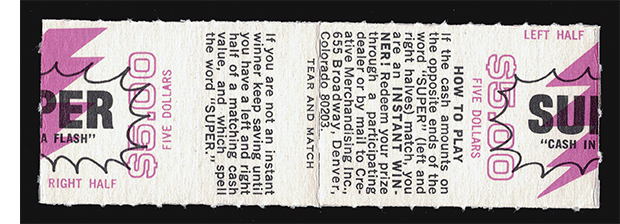 LEFT HALF
$5.00
FIVE DOLLARS
SU
"CASH IN
HOW TO PLAY
If the cash amounts on
the opposite ends of the
word "SUPER" (left and
right halves) match, you
are an INSTANT WIN-
NER! Redeem your prize
through a participating
dealer or by mail to Cre-
ative Merchandising Inc.,
655 Broadway, Denver,
Colorado 80203.
TEAR AND MATCH
If you are not an instant
winner keep saving until
you have a left and right
half of a matching cash
value, and which spell
the word "SUPER."
$5.00
FIVE DOLLARS
PER
A FLASH"
RIGHT HALF